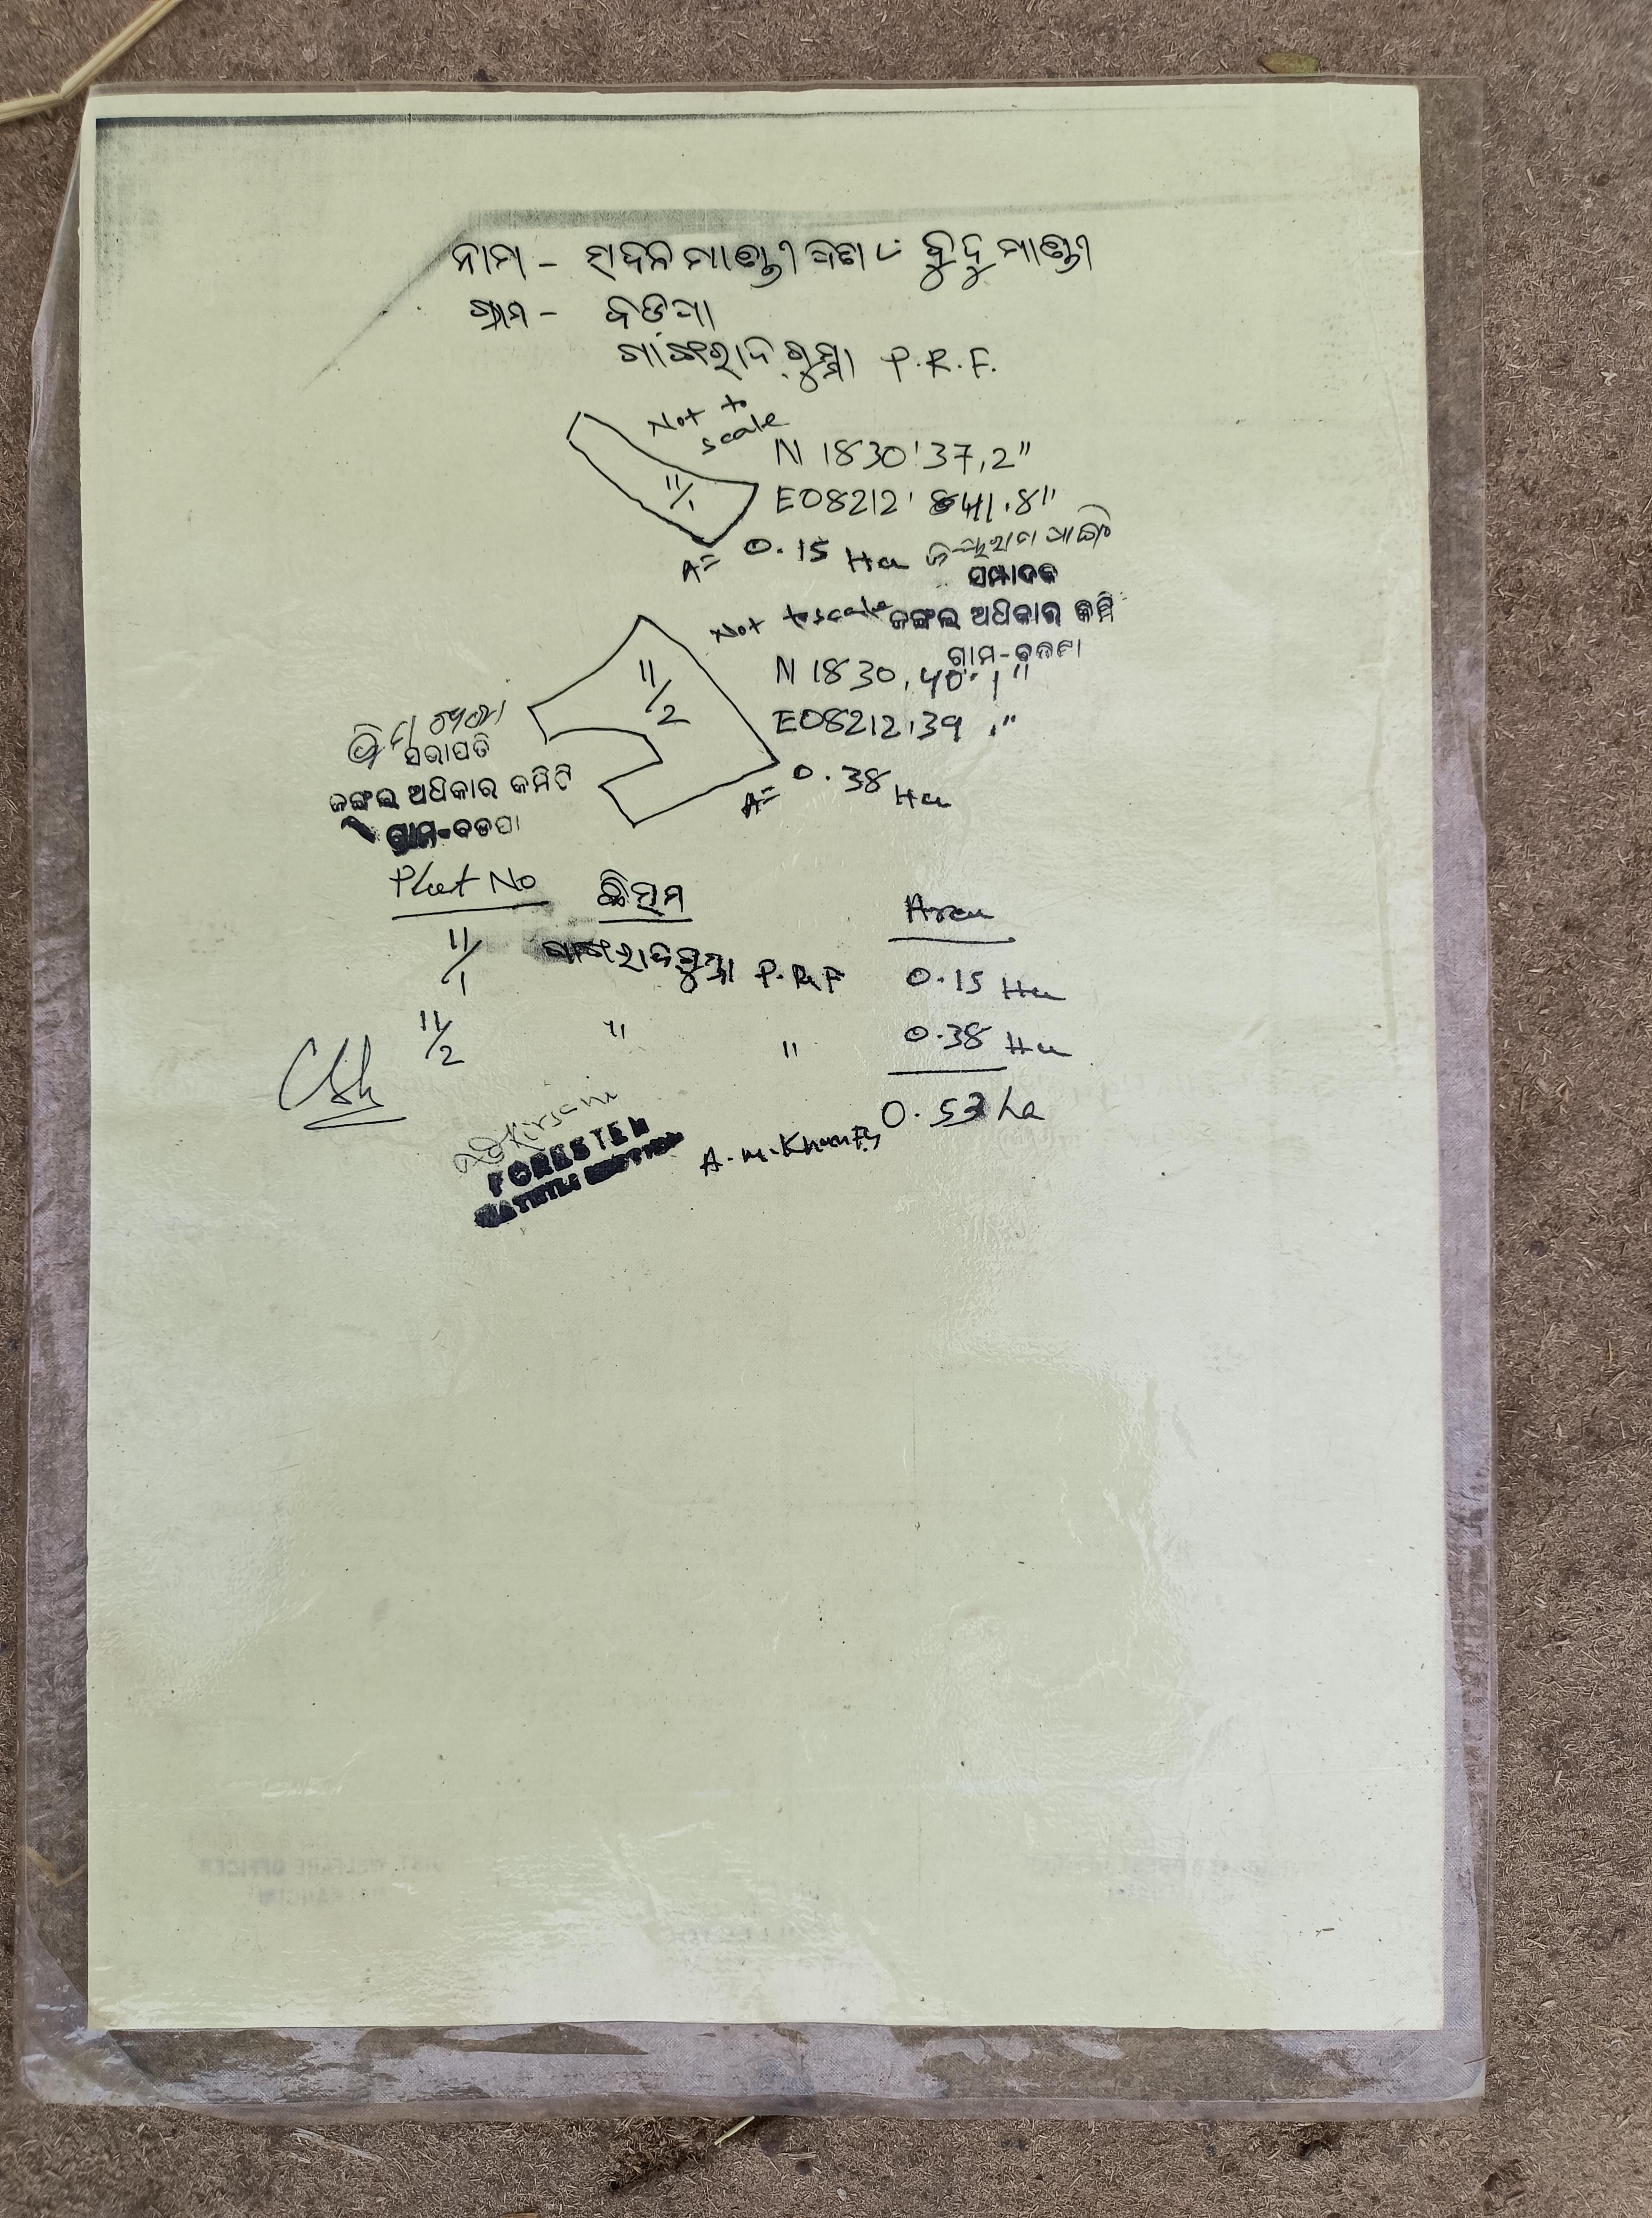 ନାମ - ହାଦନ ମାଣ୍ଡୀ ପିତା ୰ ବୁଦୁ ମାଣ୍ଡୀ
ଗ୍ରାମ - ବଡପା
P.R.F.
Not to
scale
N 1830'37,2"
11/1
E08212' 841.8"
A= 0.15 Ha
ସମ୍ପାଦକ
Not to scale ଜଙ୍ଗଲ ଅଧିକାର କମି
ଗ୍ରାମ-ବଡପା
11/2
N 1830,40.1"
E08212,39 ."
ସଭାପତି
A= 0.38 Ha
ଜଙ୍ଗଲ ଅଧିକାର କମିଟି
ଗ୍ରାମ-ବଡପା
Plot No
କିସମ
Area
11/1 P.R.F 0.15 Ha
11/2 " " 0.38 Ha
0.53 ha
FORESTER
A.M.Khara